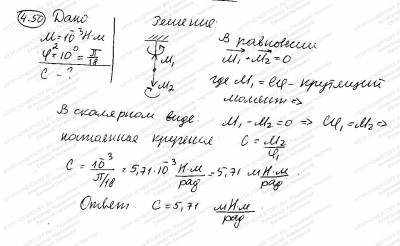 4.50 Дано
M=10⁻³ Н·м
φ=10°=π/18
C - ?
Решение:
M₁
M₂
В равновесии
M₁+M₂=0
где M₁=Cφ - крутящий
момент ⇒
В скалярном виде: M₁-M₂=0 ⇒ Cφ₁=M₂ ⇒
постоянная кручения C=M₂/φ₁
C=10⁻³/(π/18)=5,71·10⁻³ Н·м/рад=5,71 мН·м/рад.
Ответ: C=5,71 мН·м/рад.